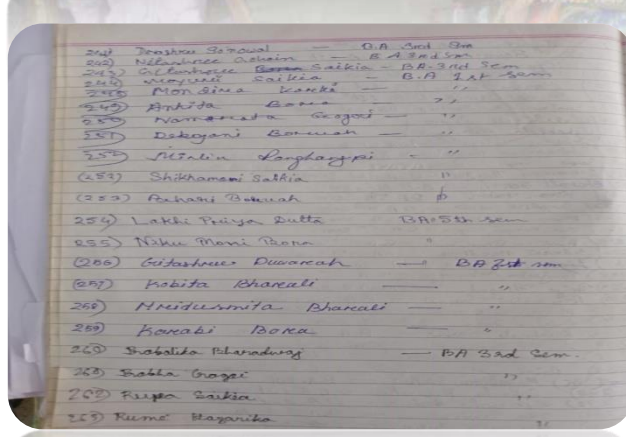 241) Sonowal — B.A 3rd Sem
242) Nilashree Gohain — B A 3rd Sem
243) Saikia - BA. 3rd Sem
244) Saikia — B.A 1st Sem
Monisua Karki — "
249) Ankita Bora "
250) Namrata Gogoi — "
251) Borruah — "
252) Mirlin Ronghangpi - "
(252) Shikhamoni Saikia "
(253) Pahari Boruah
254) Lakhi Priya Dutta BA. 5th sem
255) Niku Moni Bora "
(256) Gitashree Duwarah — BA sem
(257) Kobita Bharali — "
258) Mridusmita Bharali — "
259) Karabi Bora — "
260) Bharadwaj — BA 3rd Sem.
Gogoi "
262) Rupa Saikia "
263) Rumi Hazarika "